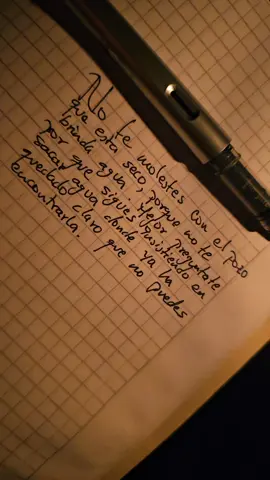 No te molestes con el pozo
que esta seco, porque no te
brinda agua. Mejor preguntate
por que sigues insistiendo en
sacar agua donde ya ha
quedado claro, que no puedes
encontrarla.